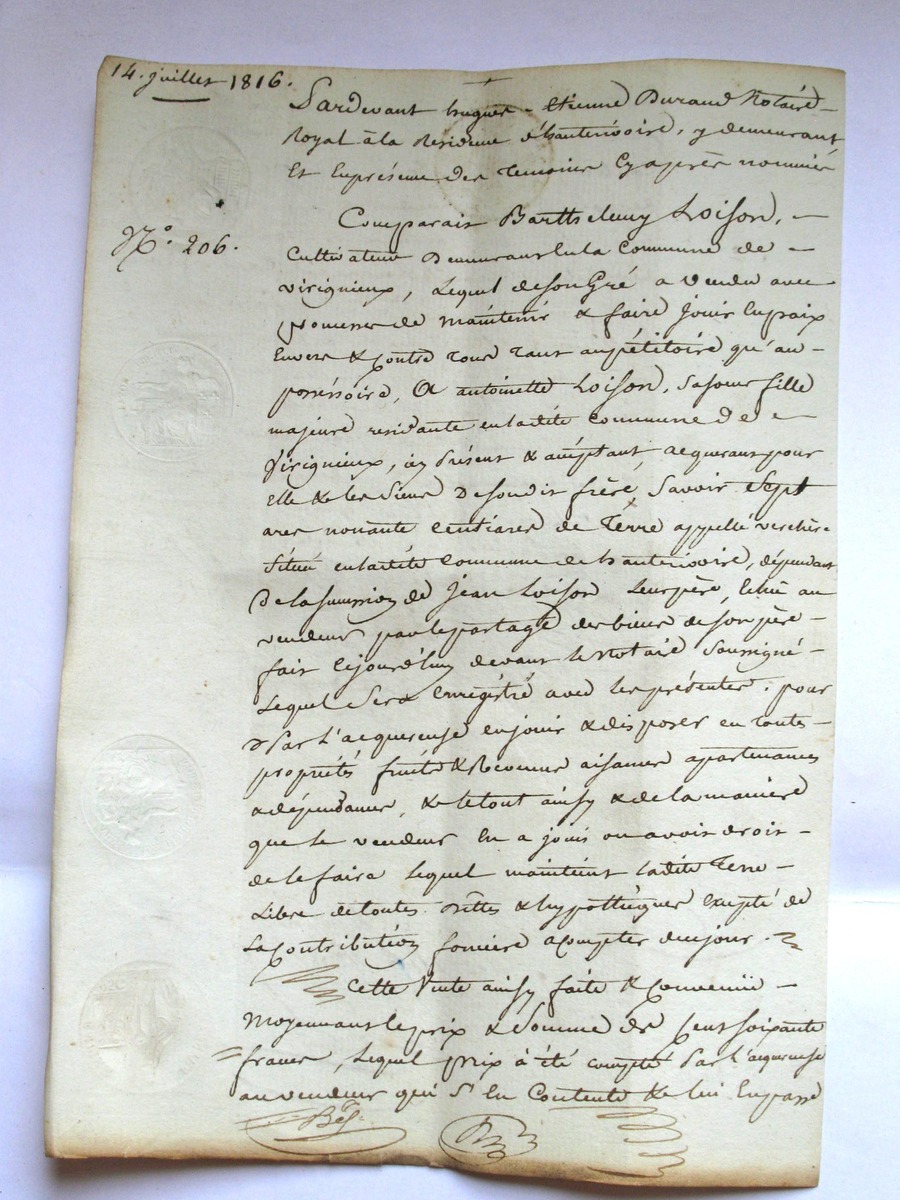 14. juillet 1816.
Pardevant hugues-étienne Durand Notaire
Royal à la Residence d'hauterivoire, y demeurant
Et En présence des Temoins Cy après nommés
Comparait Barthelemy Loison,
N.o 206.
Cultivateur Demeurant En la Commune de
virignieux, Lequel de son Gré a vendu avec
promesse de maintenir & faire jouir En paix
Envers & Contre tous tant au pétitoire qu'au
possessoire, A antoinette Loison, sa soeur fille
majeure residante en ladite Commune De
Virignieux, icy Présent & acceptant acquerant pour
Elle & les siens De son dit frère, Savoir Sept
ares nonante Centiares de Terre appellé verchère
Située en ladite Commune de hauterivoire, dépendant
De la succession de Jean Loison Leur père, échue au
vendeur par le partage des biens de son père
fait Cejourd'huy devant le Notaire Soussigné
Lequel Sera Enregistré avec les présentes. pour
Par L'acquereuse en jouir & disposer en toutes
propriétés fruits & Revenus aisances apartenances
& dépendances, & le tout ainsy & de la manière
que Le vendeur En a jouis ou avoit droit
de le faire Lequel maintient ladite Terre
Libre de toutes dettes & hypothèques excepté de
La Contribution foncière a compter de ce jour.
Cette Vente ainsy faite & Convenüe
Moyennant le prix & Somme de Cent soixante
francs, Lequel prix à été compté Par L'acquereuse
au vendeur qui S'En Contente & lui En passe